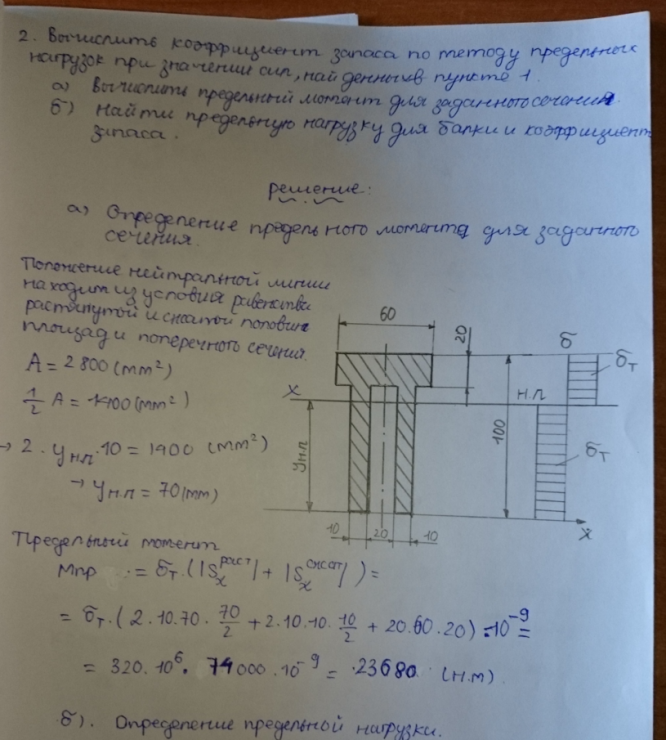 2. Вычислить коэффициент запаса по методу предельных
нагрузок при значении сил, найденных в пункте 1.
а) Вычислить предельный момент для заданного сечения.
б) Найти предельную нагрузку для балки и коэффициент
запаса.
Решение:
а) Определение предельного момента для заданного
сечения.
Положение нейтральной линии
находит из условия равенства
растянутой и сжатой половин
площади поперечного сечения.
A = 2800 (мм²)
½ A = 1400 (мм²)
→ 2 · yн.л · 10 = 1400 (мм²)
→ yн.л = 70 (мм)
60
20
σ
σт
X
н.л
yн.л
100
σт
10
20
10
x
Предельный момент
Mпр = σт · (|Sxраст| + |Sxсжат|) =
= σт · (2·10·70 · 70/2 + 2·10·10 · 10/2 + 20·60·20) · 10⁻⁹ =
= 320 · 10⁶ · 74000 · 10⁻⁹ = 23680 (н.м)
б). Определение предельной нагрузки.